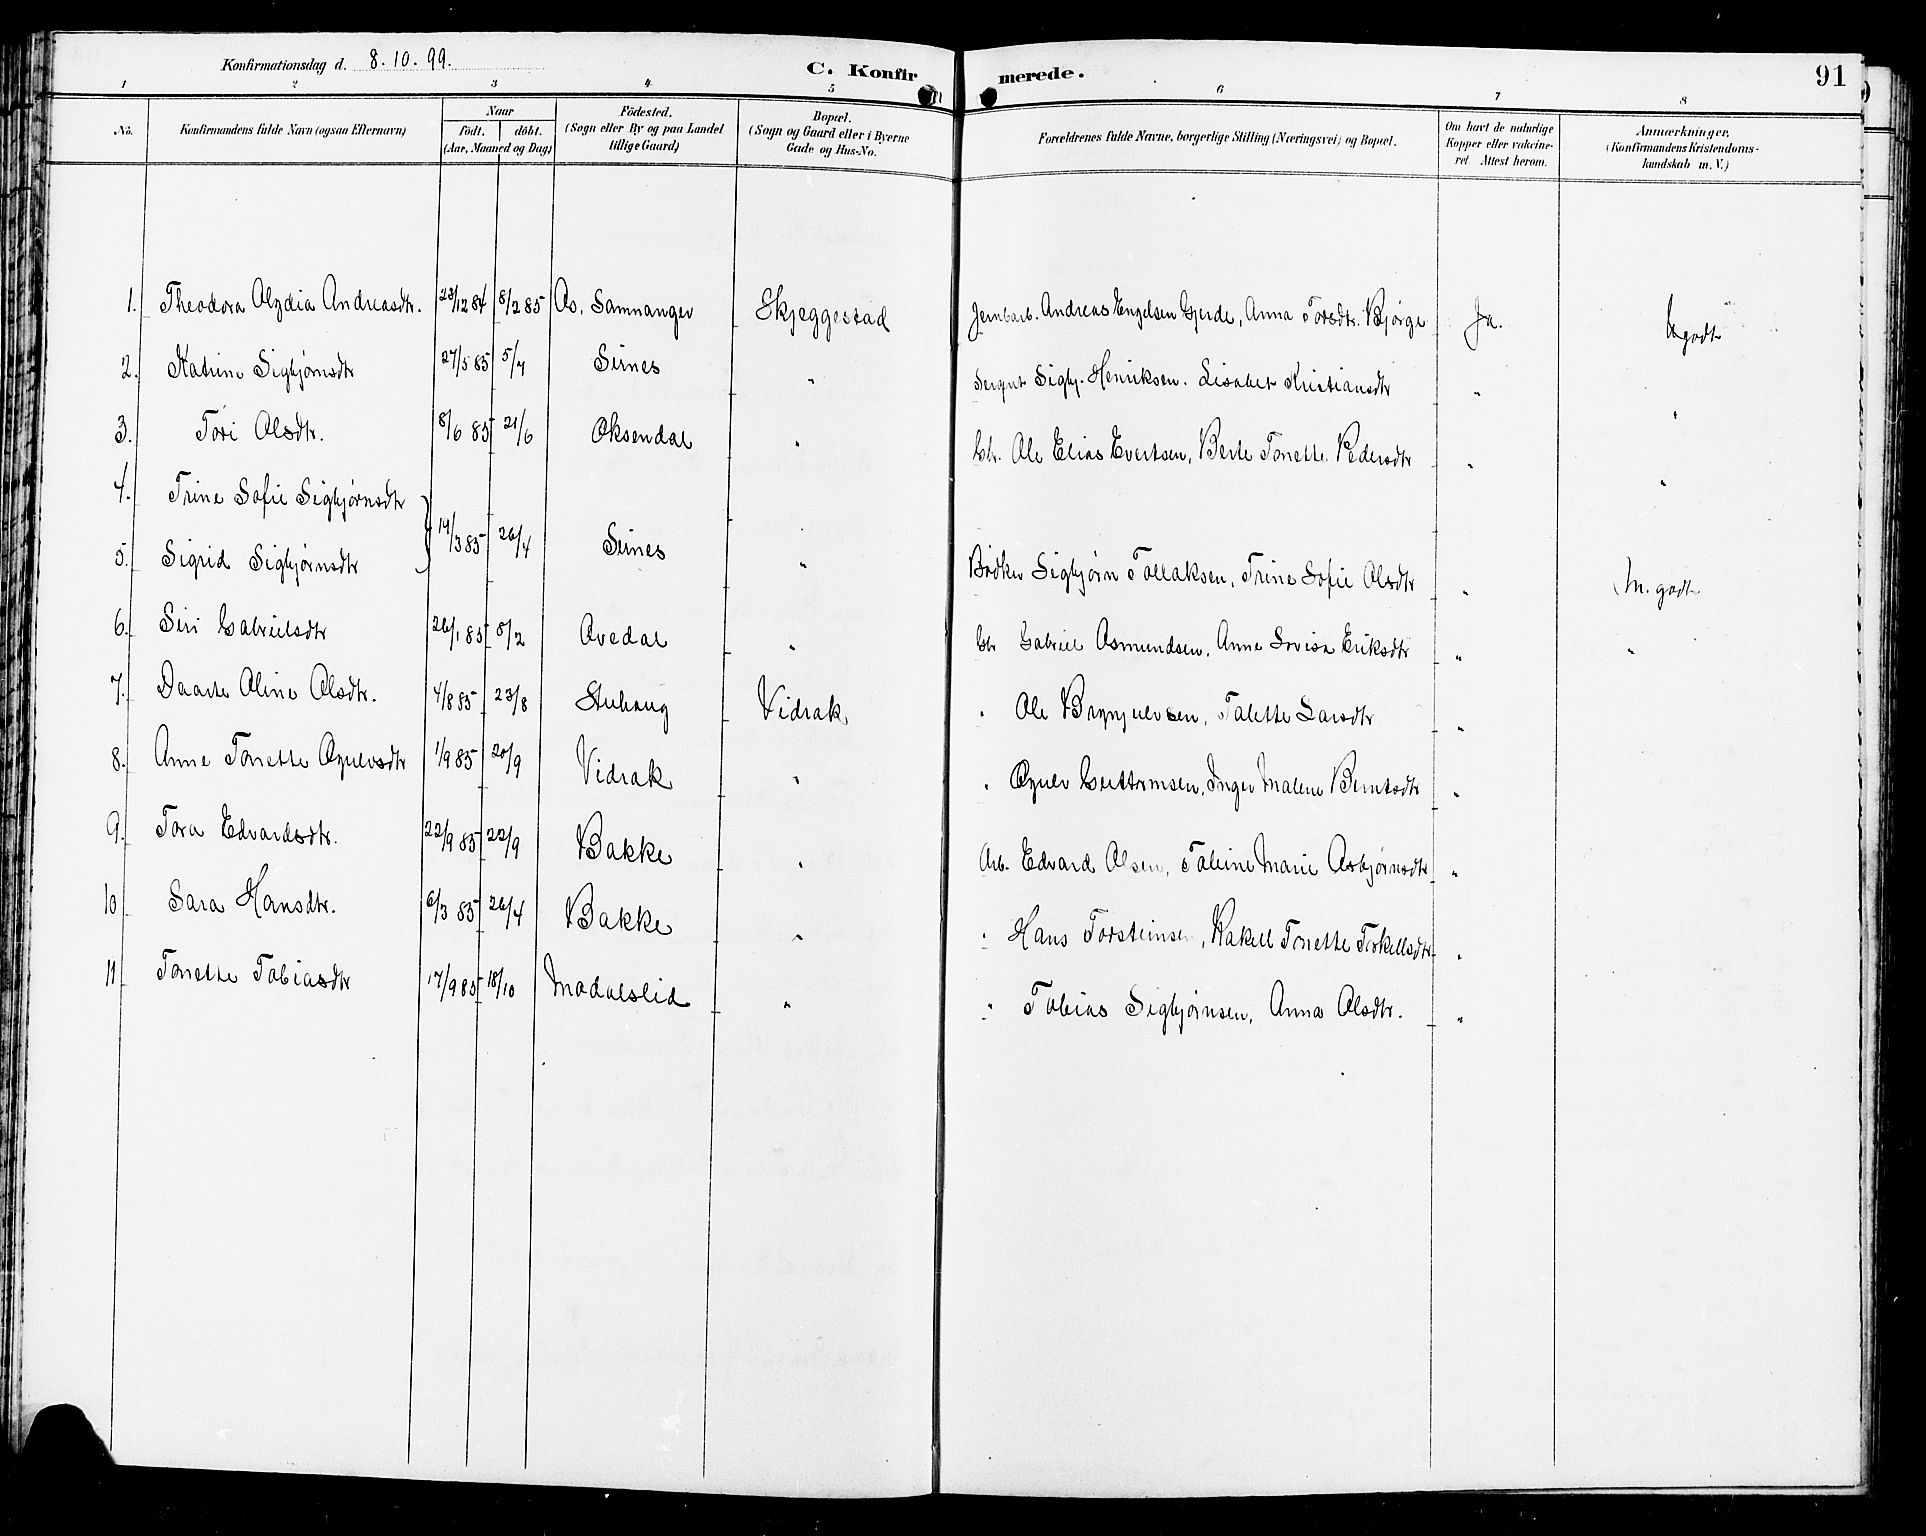 Konfirmationsdag d. 8.10.99.
C. Konfirmerede.
91
1 2 3 4 5 6 7 8
No.
Konfirmandens fulde Navn (ogsaa Efternavn)
Naar
födt. | döbt.
(Aar, Maaned og Dag)
Födested.
(Sogn eller By og paa Landet
tillige Gaard)
Bopæl.
(Sogn og Gaard eller i Byerne
Gade og Hus-No.
Forældrenes fulde Navne, borgerlige Stilling (Næringsvei) og Bopæl.
Om havt de naturlige
Kopper eller vakcine-
ret. Attest herom.
Anmærkninger.
(Konfirmandens Kristendoms-
kundskab m. V.)
1. Theodora Alydia Andreasdtr. 23/12 84 8/2 85 Os, Samnanger Skjeggestad Jernbarb. Andreas Engelsen Gjerde, Anna Torsdtr. Bjørge Ja. godt
2. Katrine Sigbjørnsdtr 27/5 85 5/7 Sirnes " Sergnt Sigbj. Henriksen. Lisabet Kristiansdtr " "
3. Tori Olsdtr. 8/6 85 21/6 Oksendal " Gbr. Ole Elias Evertsen, Berte Tonette Pedersdtr " "
4. Trine Sofie Sigbjørnsdtr
5. Sigrid Sigbjørnsdtr } 19/3 85 26/4 Sirnes " Bødker Sigbjørn Tollaksen, Trine Sofie Olsdtr " M. godt
6. Siri Gabrielsdtr 26/1 85 8/2 Avedal " Gbr Gabriel Osmundsen, Anne Lovisa Eriksdtr " "
7. Daarte Oline Olsdtr. 4/8 85 23/8 Stuhaug Vidrak " Ole Brynjulvsen, Talette Larsdtr "
8. Anne Tonette Ognulvsdtr 1/9 85 20/9 Vidrak " " Ognulv Guttormsen, Inger Malene Berntsdtr "
9. Tora Edvardsdtr. 22/9 85 22/9 Bakke " Arb. Edvard Olsen, Taline Marie Asbjørnsdtr "
10 Sara Hansdtr. 6/3 85 26/4 Bakke " " Hans Torsteinsen, Rakell Tonette Torkellsdtr "
11 Tonette Tobiasdtr 17/9 85 18/10 Modalslid " " Tobias Sigbjørnsen, Anna Olsdtr. "